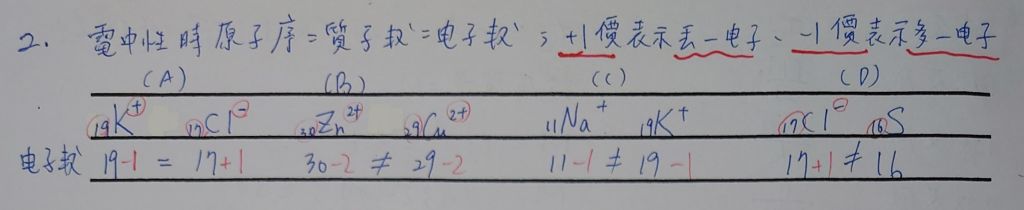 2. 電中性時原子序=質子数=电子数; +1價表示丟一电子、-1價表示多一电子
(A) (B) (C) (D)
₁₉K⁺ ₁₇Cl⁻ ₃₀Zn²⁺ ₂₉Cu²⁺ ₁₁Na⁺ ₁₉K⁺ ₁₇Cl⁻ ₁₆S
电子数 19-1 = 17+1 30-2 ≠ 29-2 11-1 ≠ 19-1 17+1 ≠ 16